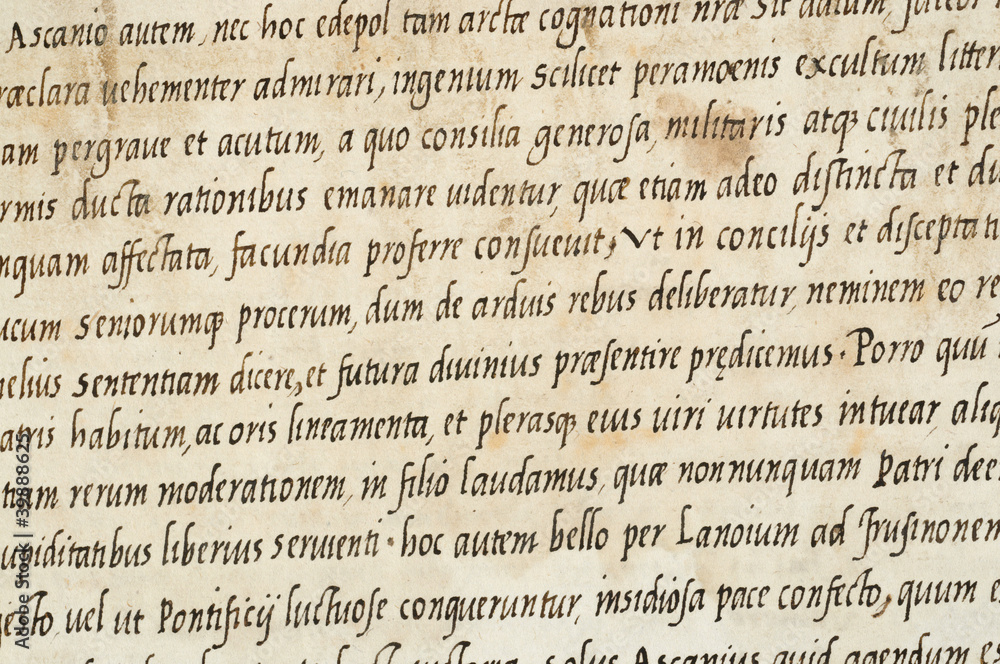 Ascanio autem, nec hoc edepol tam arctæ cognationi nræ sit datum, fateor
ræclara vehementer admirari, ingenium scilicet peramœnis excultum litter
am pergraue et acutum, a quo consilia generosa, militaris atqꝫ ciuilis ple
rmis ducta rationibus emanare uidentur, quæ etiam adeo distincta et du
nquam affectata, facundia proferre consueuit, Vt in concilijs et disceptati
ucum seniorumqꝫ procerum, dum de arduis rebus deliberatur, neminem eo re
melius sententiam dicere, et futura diuinius præsentire prędicemus. Porro quū
atris habitum, ac oris lineamenta, et plerasqꝫ eius uiri uirtutes intuear, aliq
tiam rerum moderationem, in filio laudamus, quæ nonnunquam Patri dee
upiditatibus liberius seruienti. hoc autem bello per Lanoium ad Frusinonem
iecto, uel ut Pontificij luctuose conqueruntur, insidiosa pace confecto, quum e
solus Ascanius quid agendum es
Adobe Stock | #39888625
Adobe Stock